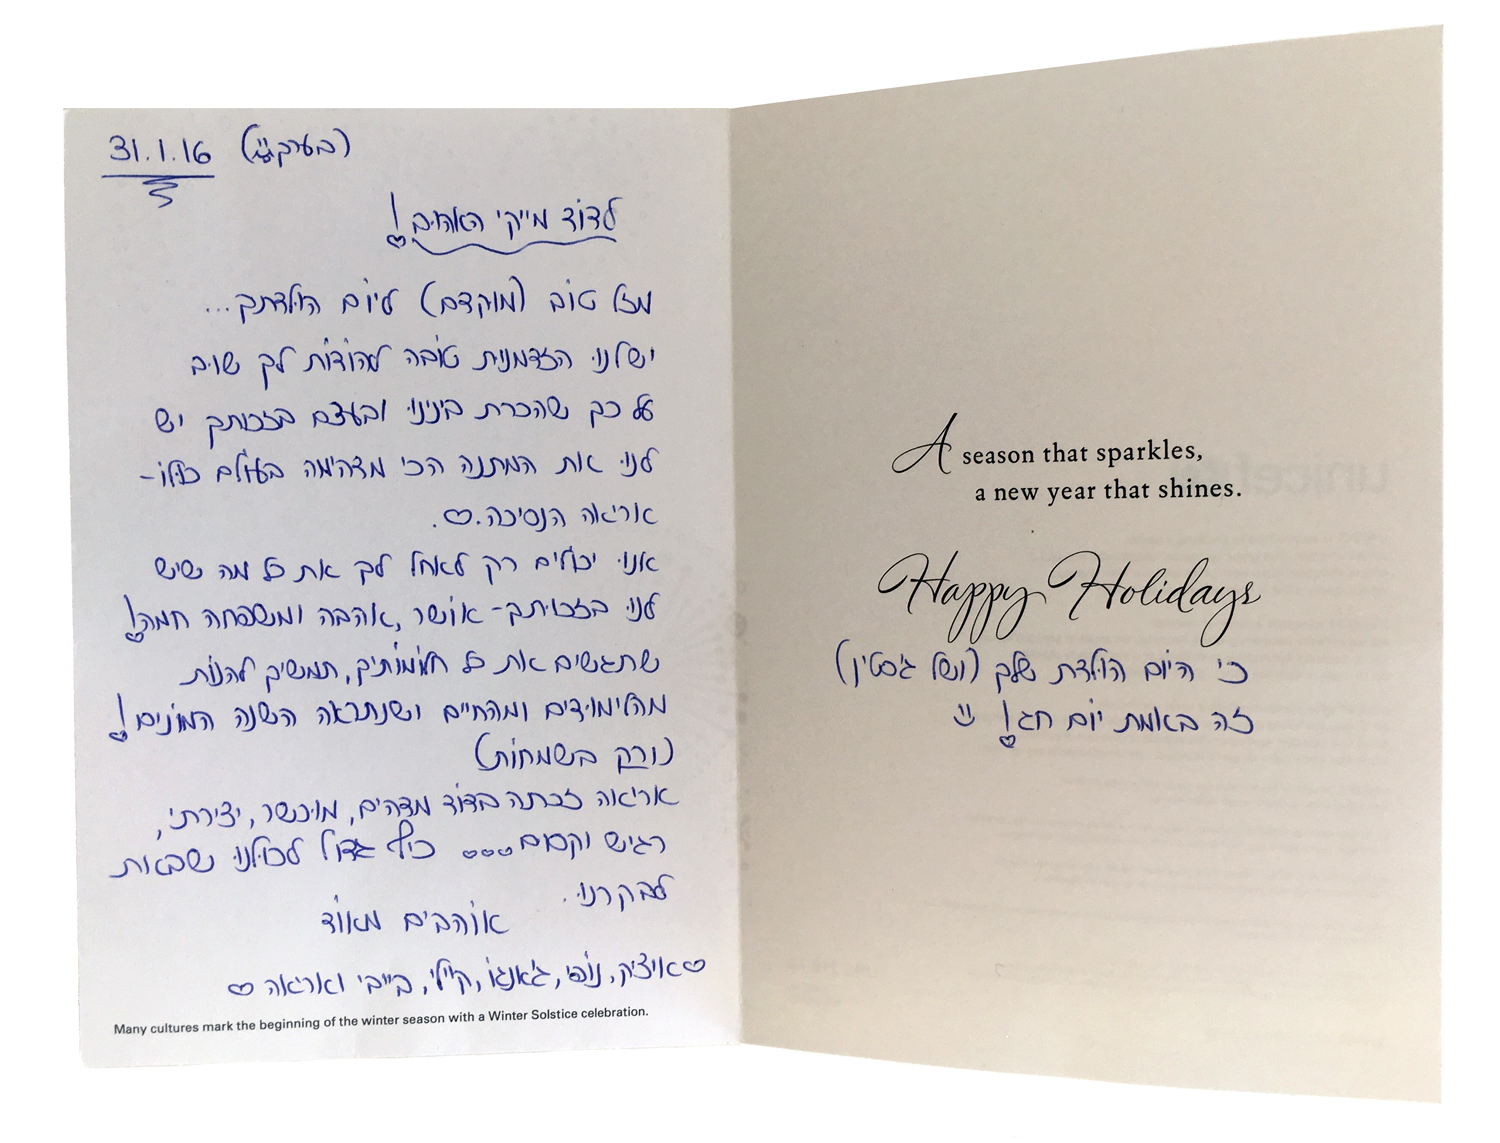 31.1.16 (בערך)
לדוד מייקי האהוב!
מזל טוב (מוקדם) ליום הולדתך...
יש לנו הזדמנות טובה להודות לך שוב
על כך שהכרת בינינו ובעצם בזכותך יש
לנו את המתנה הכי מדהימה בעולם כולו-
אריאה הנסיכה.♡.
אנו יכולים רק לאחל לך את כל מה שיש
לנו בזכותך- אושר, אהבה ומשפחה חמה!
שתגשים את כל חלומותיך, תמשיך להנות
מהלימודים ומהחיים ושנתראה השנה המונים!
(ורק בשמחות)
אריאה זכתה בדוד מדהים, מוכשר, יצירתי,
רגיש וקסום... כיף גדול לכולנו שבאת
לבקרנו.
אוהבים מאוד
♡איציק, נופי, ג'אנגו, קיילי, בייבי ואריאה♡
Many cultures mark the beginning of the winter season with a Winter Solstice celebration.
A season that sparkles,
a new year that shines.
Happy Holidays
כי היום הולדת שלך (ושל ג'סטין)
זה באמת יום חג!
unicef